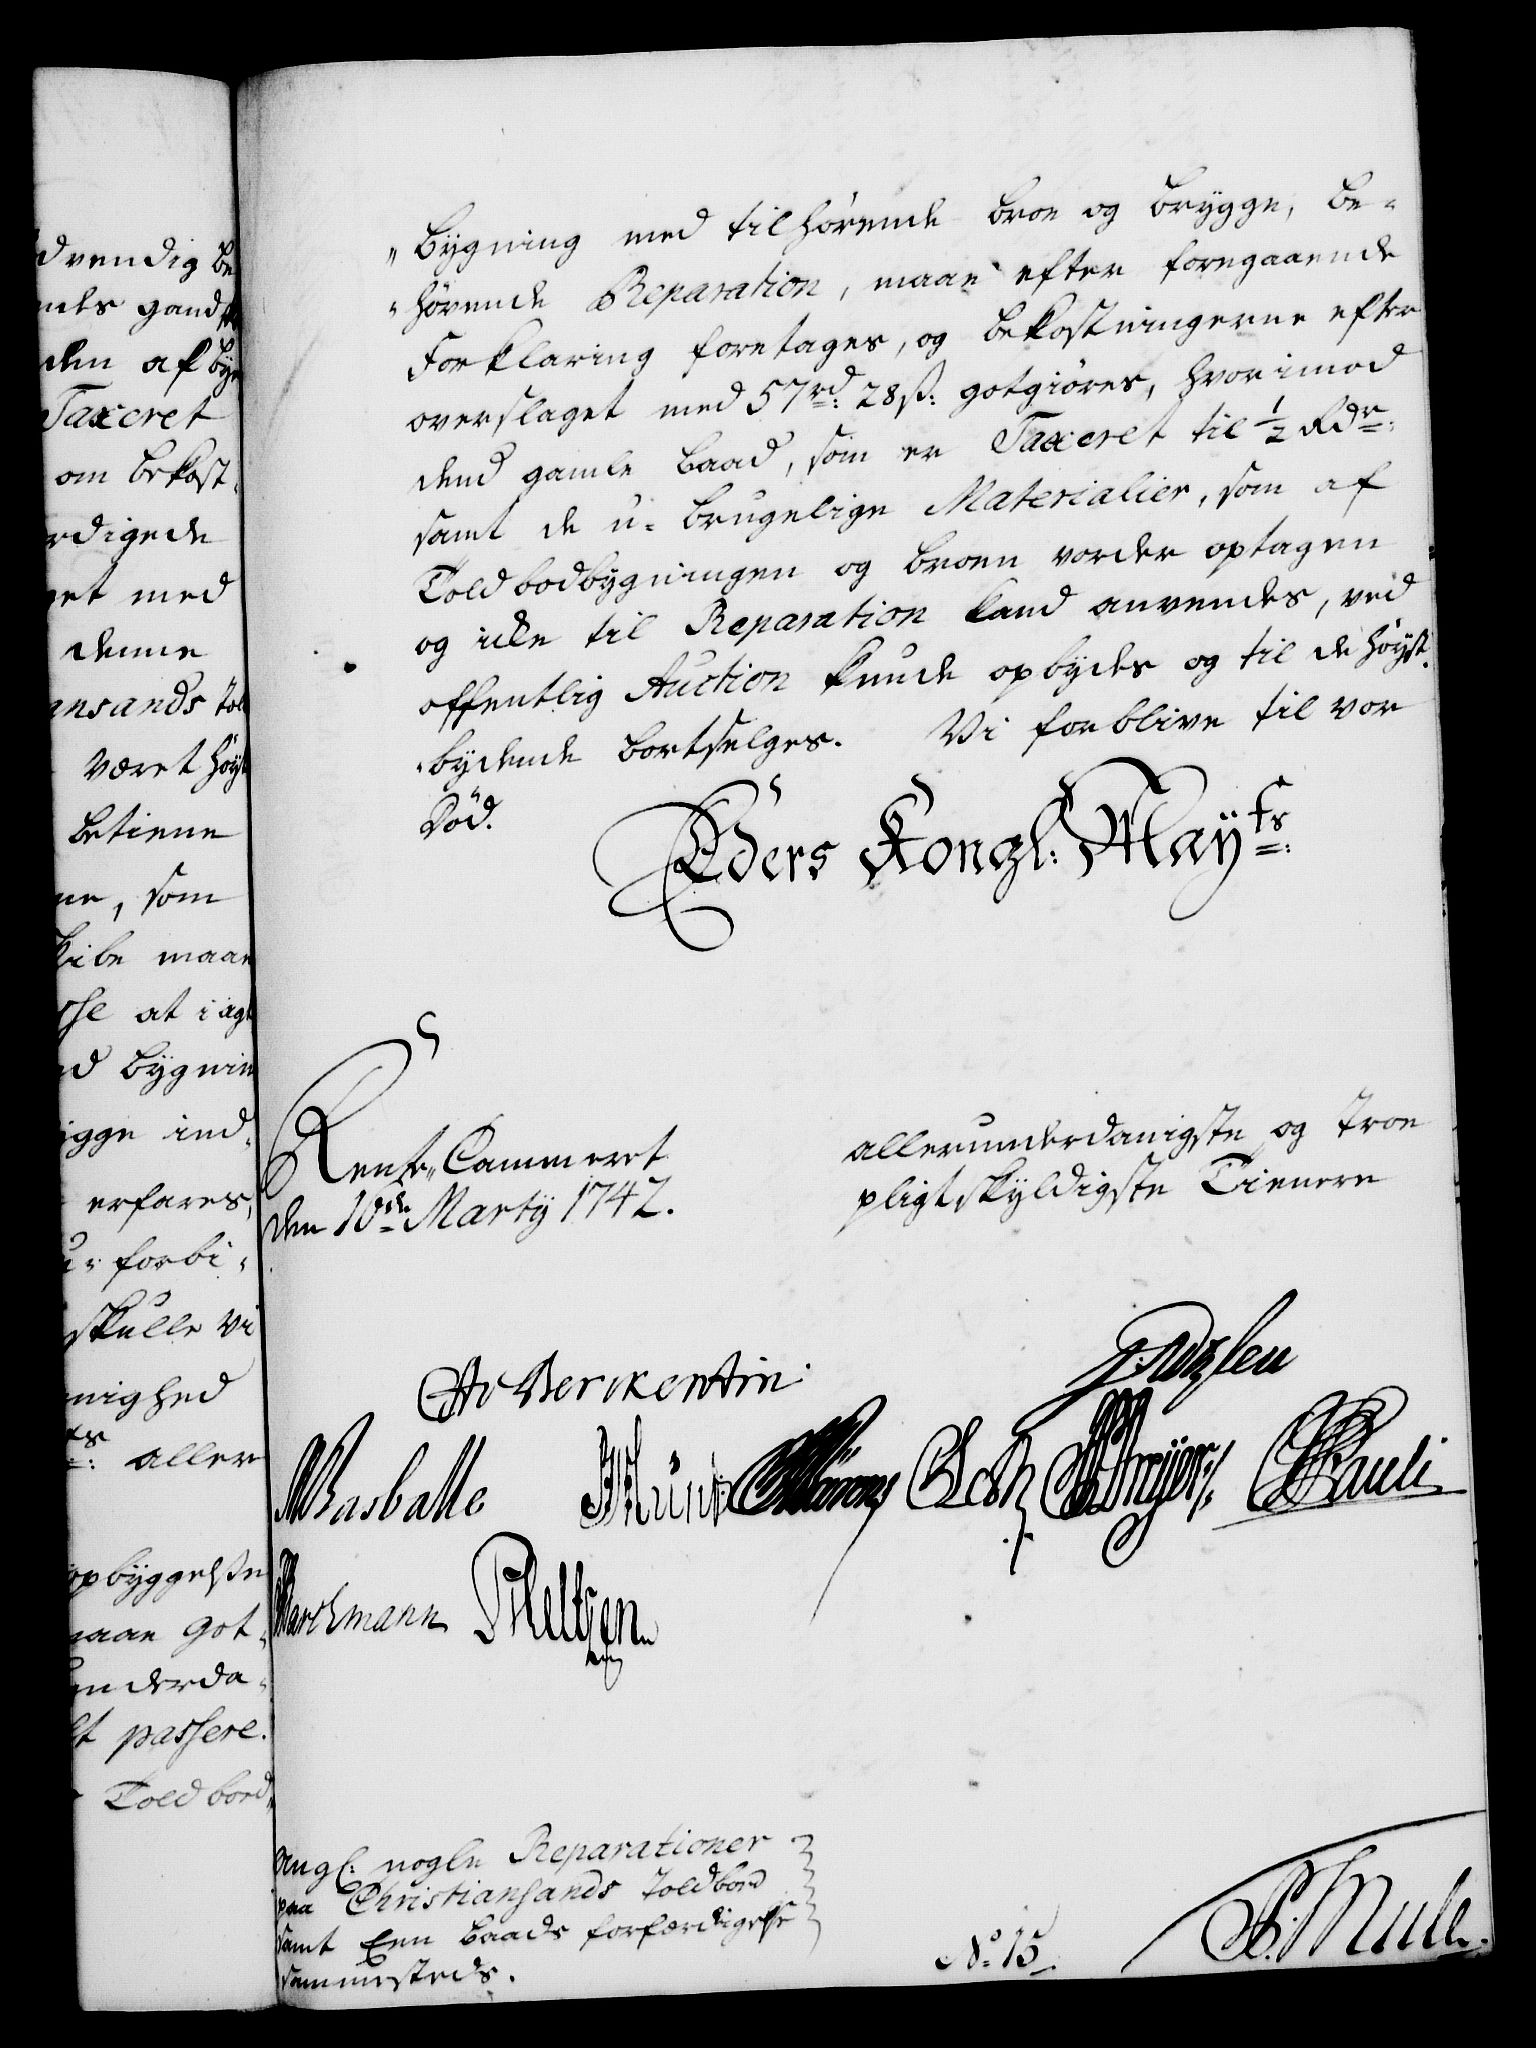 dvendig be
ndes gandske
den af bye
Taxeret
om bekost-
rdigede
get med
denne
ansands Tol
været høyst
betiene
ne, som
kibe maae
se at iagt
nd bygnin
ygge ind-
erfares,
u- forbi-
skulle vi
nighed
ts: aller
opbyggelsen
maae got-
underda-
lt passere.
Toldbod
bygning med tilhørende broe og brygge, be-
hørende Reparation, maae efter foregaaende
Forklaring foretages, og bekostningerne efter
overslaget med 57 rd: 28 ß: gotgiøres, hvorimod
dend gamle baad, som er Taxeret til ½ Rdr:
samt de u-brugelige Materialier, som af
Toldbodbygningen og broen vorder optagen
og icke til Reparation kand anvendes, ved
offentlig Auction kunde opbydes og til de høyst-
bydende bortselges. Vi forblive til vor
død.
Eders Kongl: Mayts:
Rente-Cammeret
den 10de Marty 1742.
allerunderdanigste og troe
pligtskyldigste Tienere
CAv Berckentin
Rasballe
Pauli
Marchmann Meltzen
Angl: nogle Reparationer
paa Christiansands Toldbod
samt Een baads forfærdigelse
sammesteds.
No: 15
Mule.